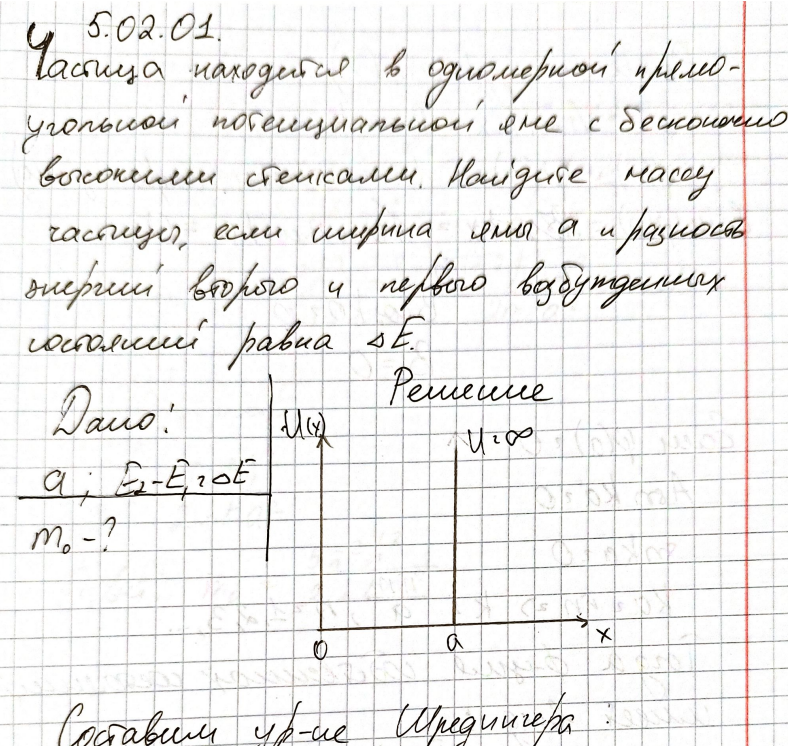 Ч 5.02.01.
Частица находится в одномерной прямо-
угольной потенциальной яме с бесконечно
высокими стенками. Найдите массу
частицы, если ширина ямы a и разность
энергий второго и первого возбужденных
состояний равна ΔE.
Решение
Дано:
a ; E₂-E₁=ΔE
m₀ -?
U(x)
U=∞
0 a x
Составим ур-ие Шредингера: